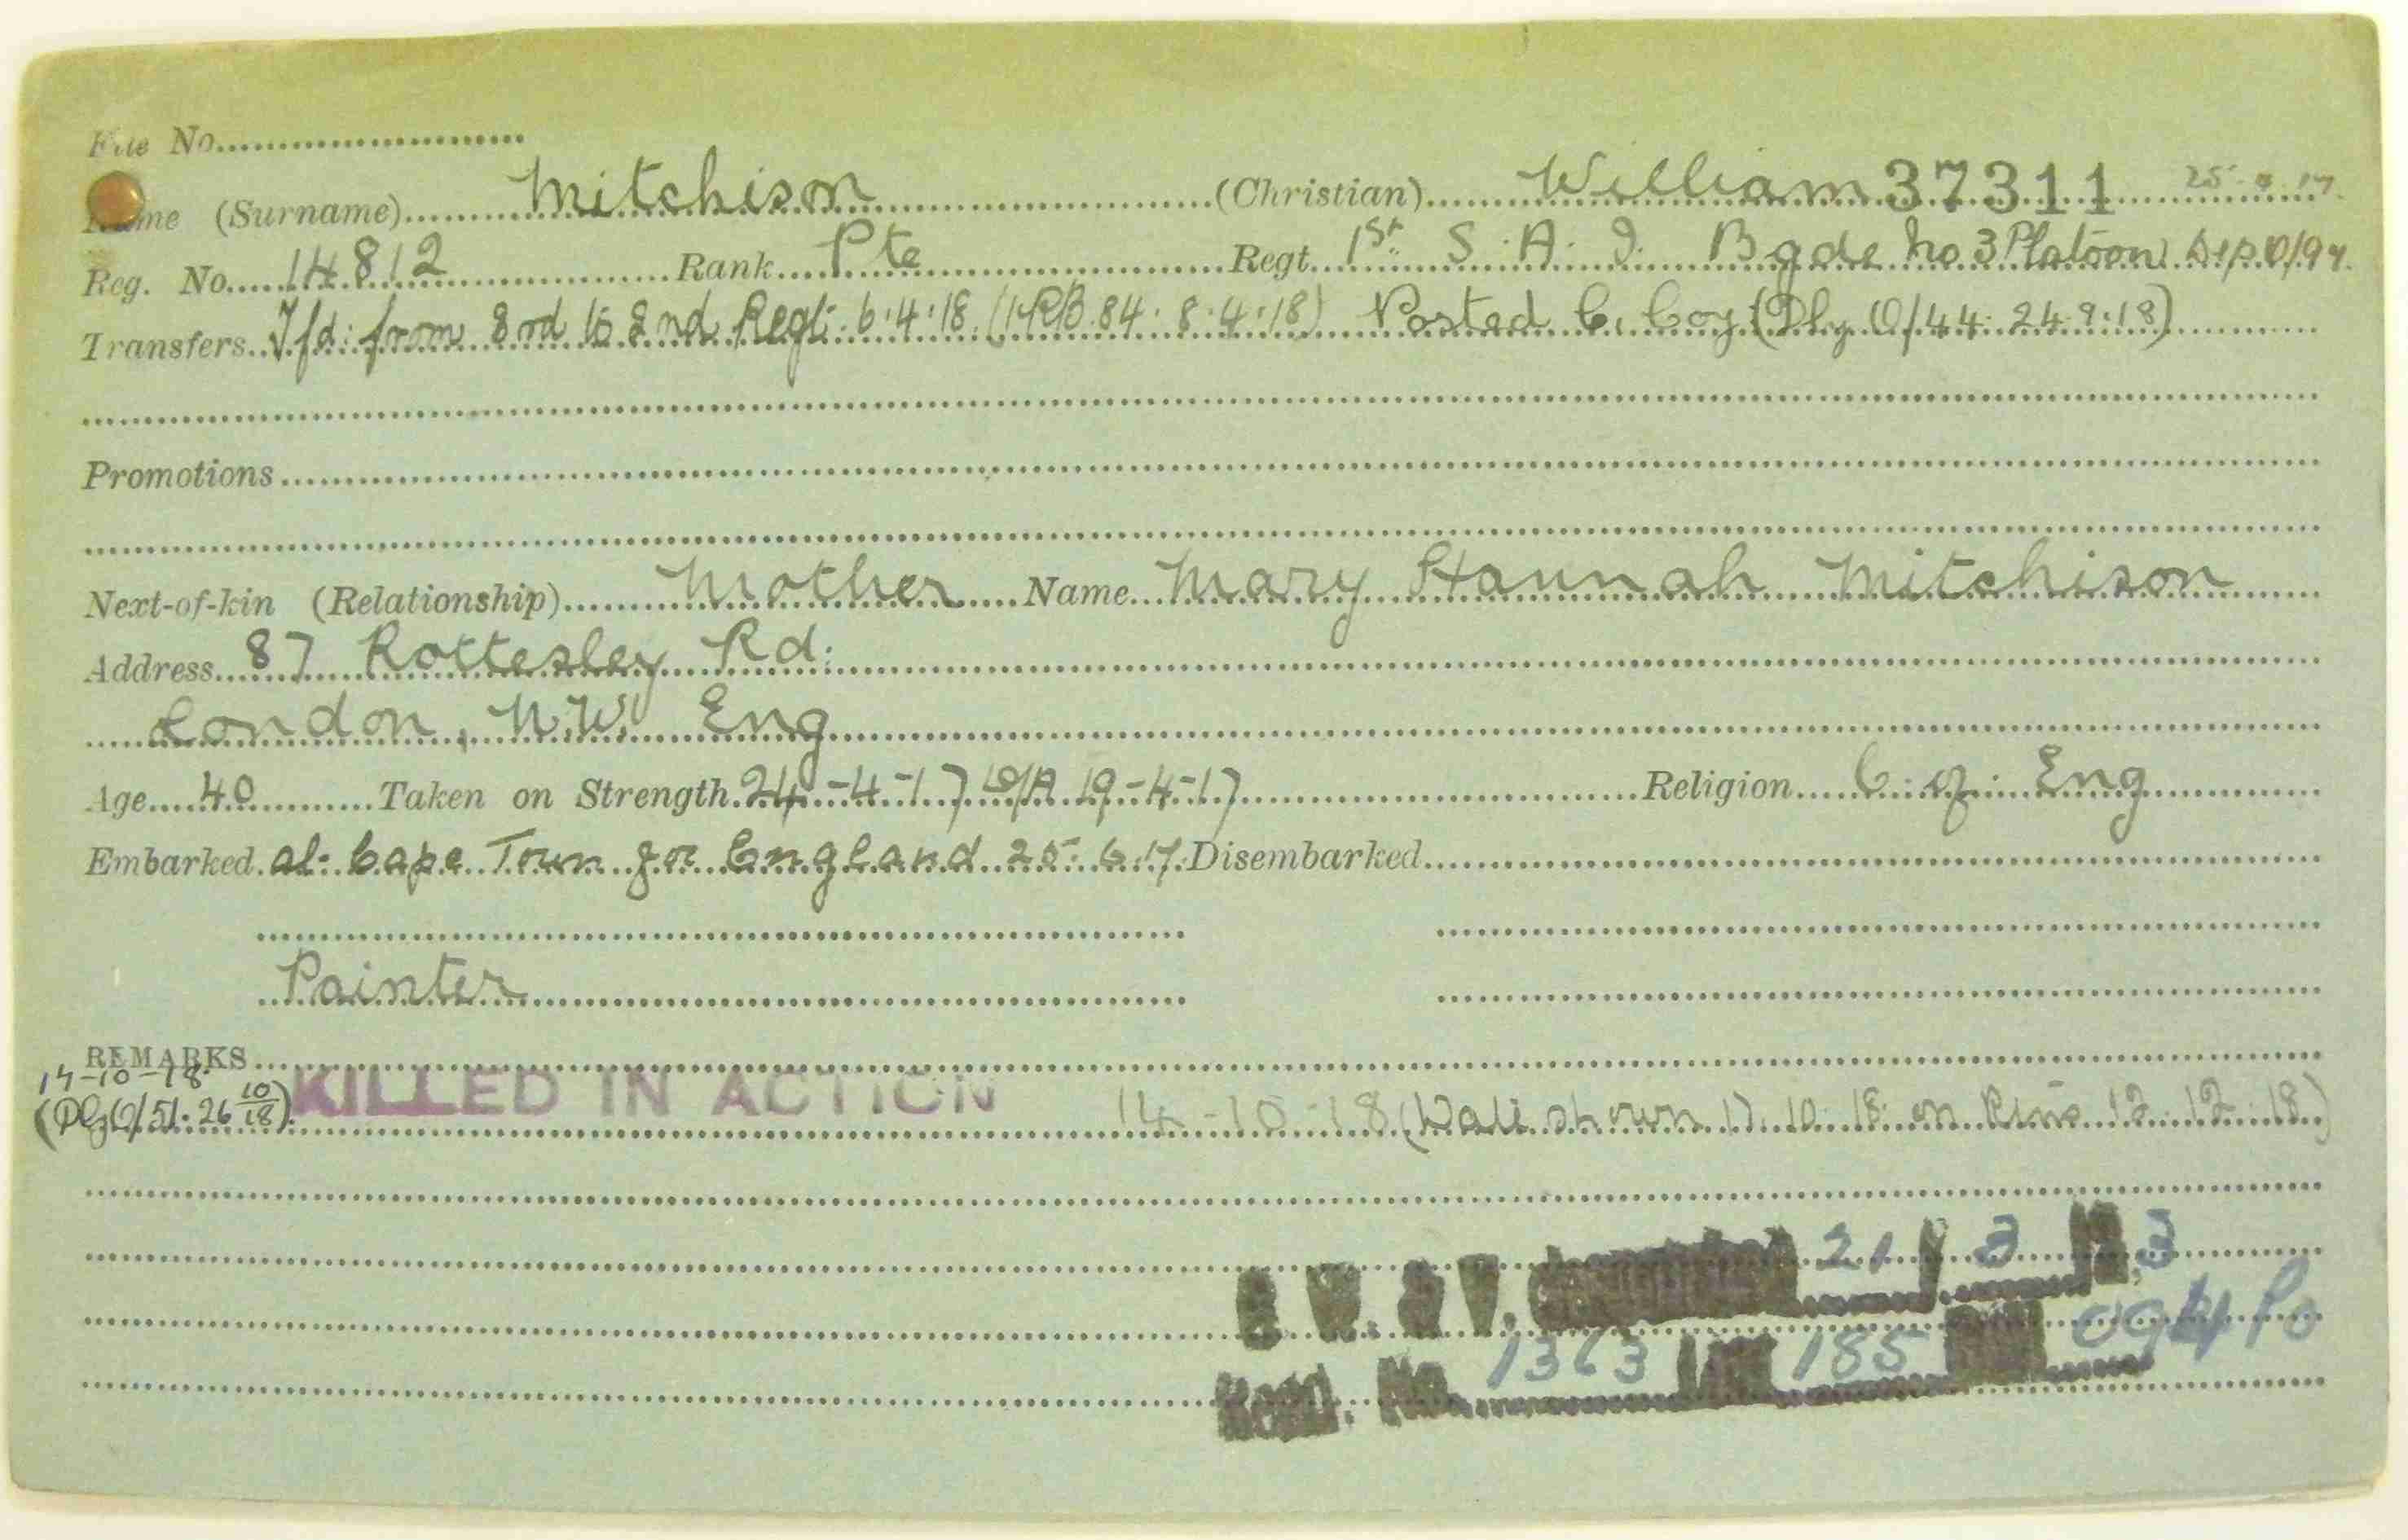 File No
Name (Surname) Mitchison (Christian) William 37311
Reg. No. 14812 Rank Pte Regt. 1st S. A. I. Bgde No 3 Platoon Dep O/94
Transfers Tfd: from 3rd to 2nd Regt. 6:4:18 84. 8.4.18) Posted C. Coy (Dly O/44. 24.9.18)
Promotions
Next-of-kin (Relationship) Mother Name Mary Hannah Mitchison
Address 87 Rottesley Rd:
London, N.W. Eng
Age 40 Taken on Strength 24-4-17 D/A 19-4-17 Religion C. of. Eng
Embarked at Cape Town for England 25.6.17 Disembarked
Painter
REMARKS
14-10-18
(Dly O/51. 26 10/18) KILLED IN ACTION 14-10-18 (Date shown 17.10.18. on 12.12.18.)
21 3 3
1363 185